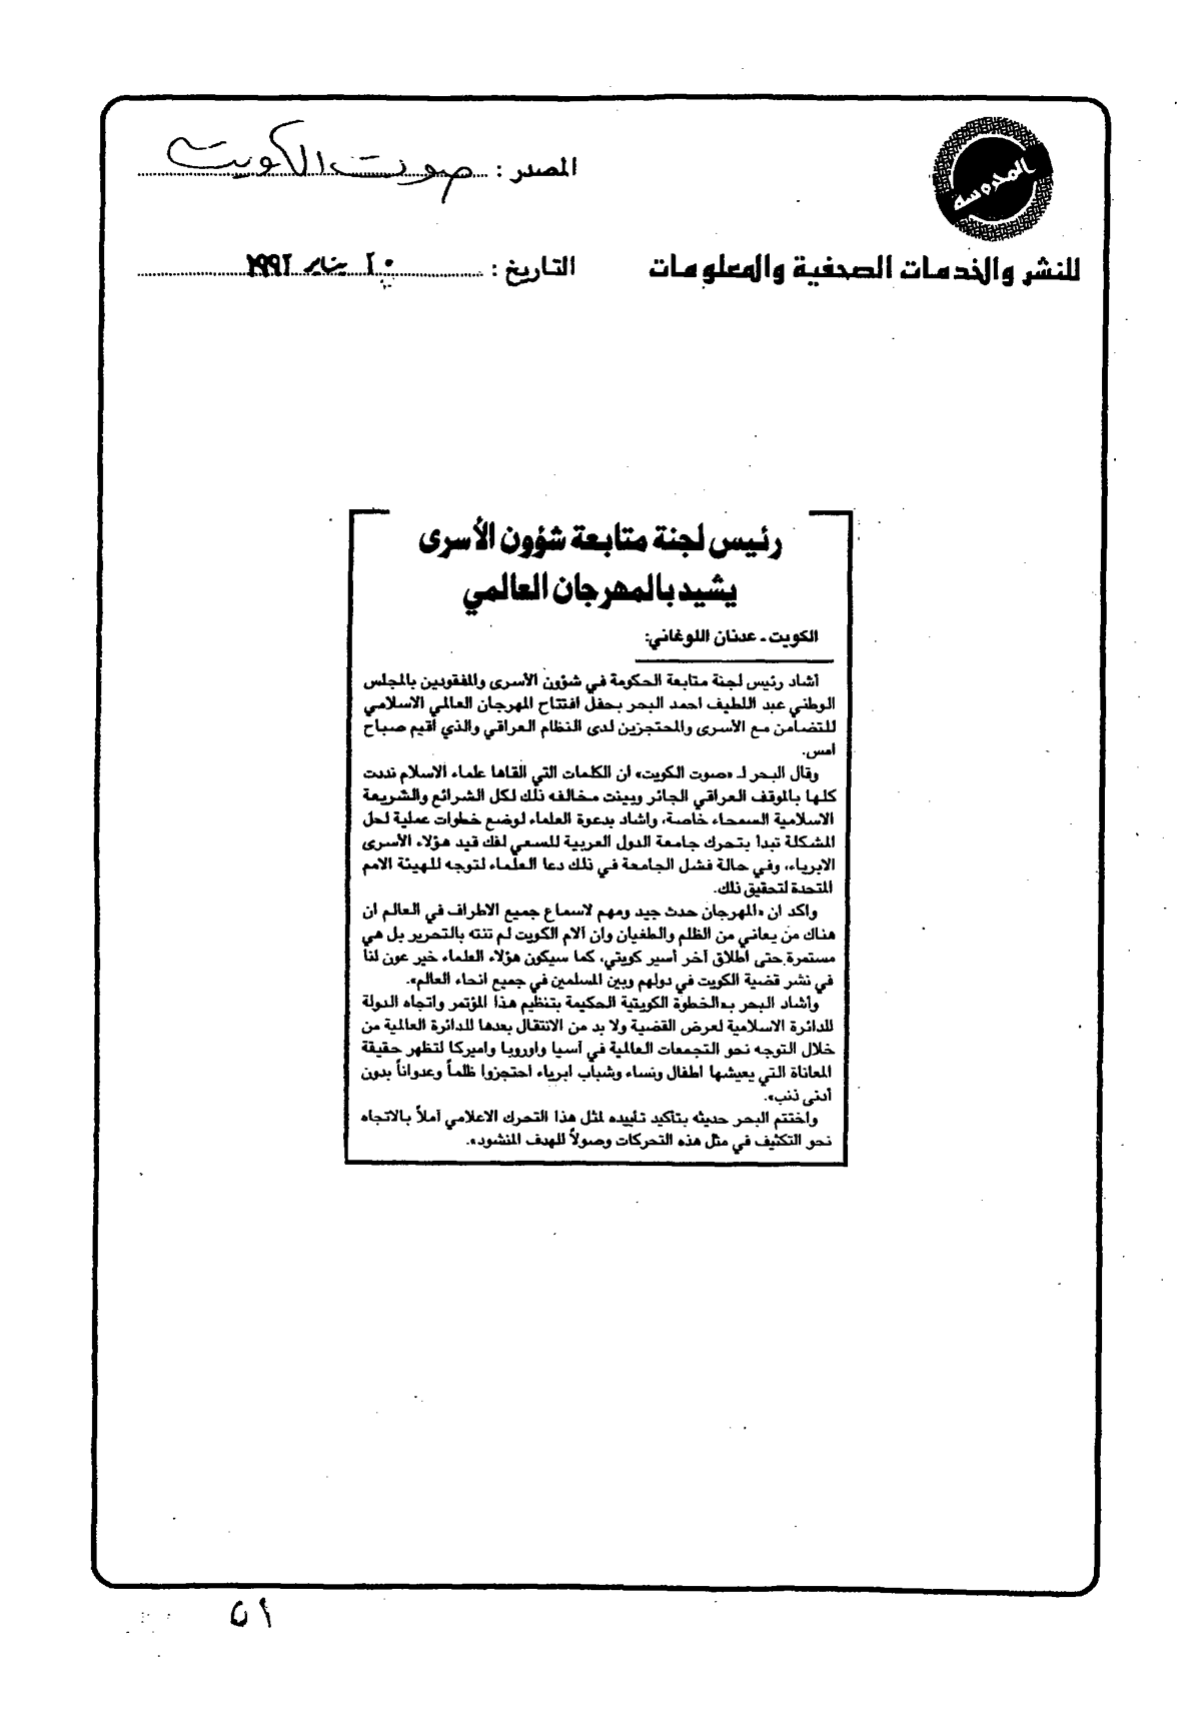 المحروسة
المصدر : صوت الكويت
للنشر والخدمات الصحفية والمعلومات
التاريخ : ٢٠ يناير ١٩٩٢
رئيس لجنة متابعة شؤون الأسرى
يشيد بالمهرجان العالمي
الكويت ـ عدنان اللوغاني:
أشاد رئيس لجنة متابعة الحكومة في شؤون الأسرى والمفقودين بالمجلس
الوطني عبد اللطيف احمد البحر بحفل افتتاح المهرجان العالمي الاسلامي
للتضامن مع الأسرى والمحتجزين لدى النظام العراقي والذي أقيم صباح
امس.
وقال البحر لـ «صوت الكويت» ان الكلمات التي القاها علماء الاسلام نددت
كلها بالموقف العراقي الجائر وبينت مخالفه ذلك لكل الشرائع والشريعة
الاسلامية السمحاء خاصة، واشاد بدعوة العلماء لوضع خطوات عملية لحل
المشكلة تبدأ بتحرك جامعة الدول العربية للسعي لفك قيد هؤلاء الأسرى
الابرياء، وفي حالة فشل الجامعة في ذلك دعا العلماء لتوجه للهيئة الامم
المتحدة لتحقيق ذلك.
واكد ان «المهرجان حدث جيد ومهم لاسماع جميع الاطراف في العالم ان
هناك من يعاني من الظلم والطغيان وان آلام الكويت لم تنته بالتحرير بل هي
مستمرة حتى اطلاق آخر أسير كويتي، كما سيكون هؤلاء العلماء خير عون لنا
في نشر قضية الكويت في دولهم وبين المسلمين في جميع انحاء العالم».
وأشاد البحر بـ«الخطوة الكويتية الحكيمة بتنظيم هذا المؤتمر واتجاه الدولة
للدائرة الاسلامية لعرض القضية ولا بد من الانتقال بعدها للدائرة العالمية من
خلال التوجه نحو التجمعات العالمية في آسيا واوروبا واميركا لتظهر حقيقة
المعاناة التي يعيشها اطفال ونساء وشباب ابرياء احتجزوا ظلماً وعدواناً بدون
أدنى ذنب».
واختتم البحر حديثه بتأكيد تأييده لمثل هذا التحرك الاعلامي آملاً بالاتجاه
نحو التكثيف في مثل هذه التحركات وصولاً للهدف المنشود».
٥١